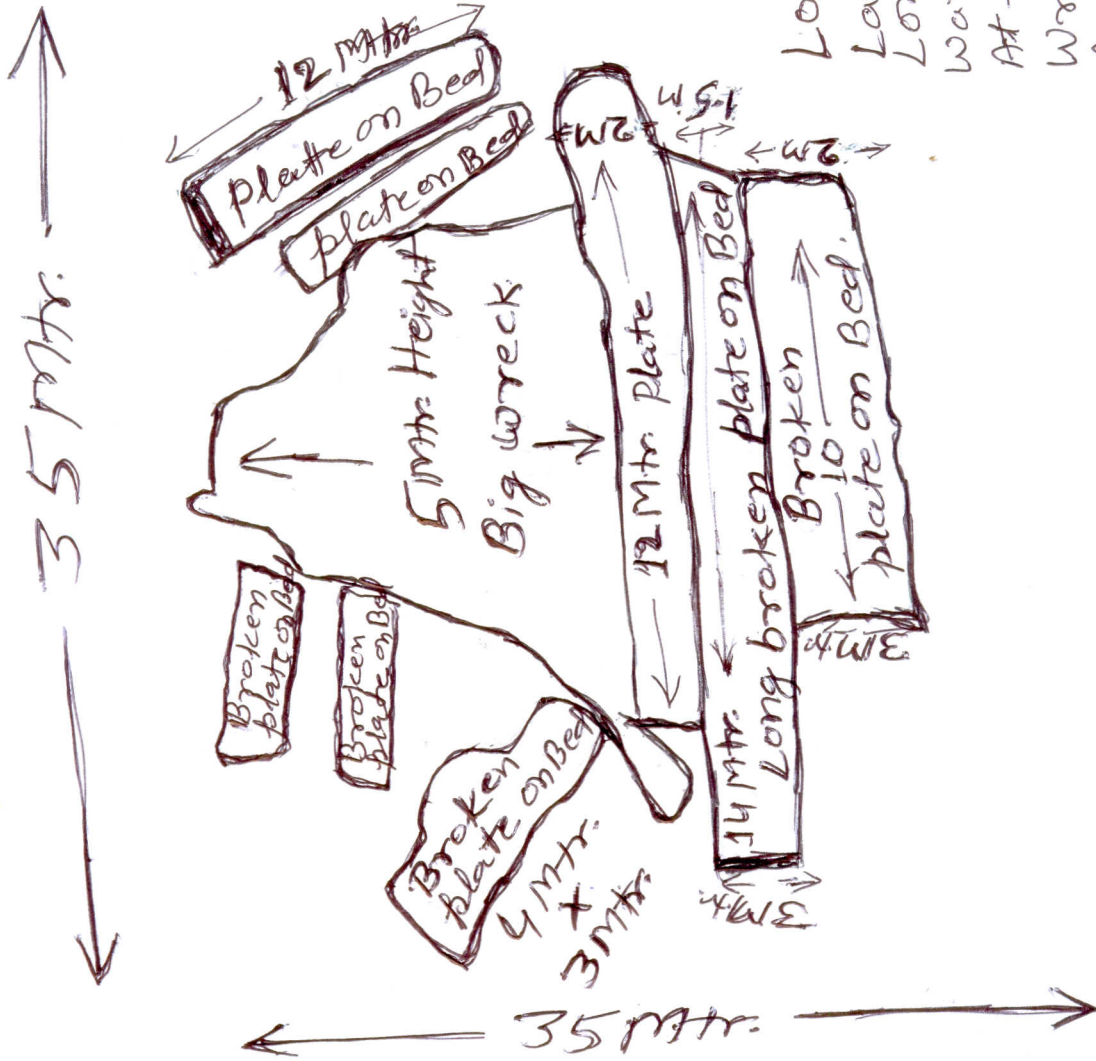 35 Mtr.
12 Mtr.
Platte on Bed
plate on Bed
5 Mtr. Height
Big wreck
2M
1.5 M
12 Mtr. Plate
14 Mtr.
Long broken plate on Bed
2M
Broken
10
plate on Bed.
3 Mtr.
3 Mtr.
Broken
plate on Bed
Broken
plate on Bed
Broken
plate on Bed
4 Mtr.
+
3 Mtr.
35 Mtr.
Lo
La
Lon
Wa
At-
Wr